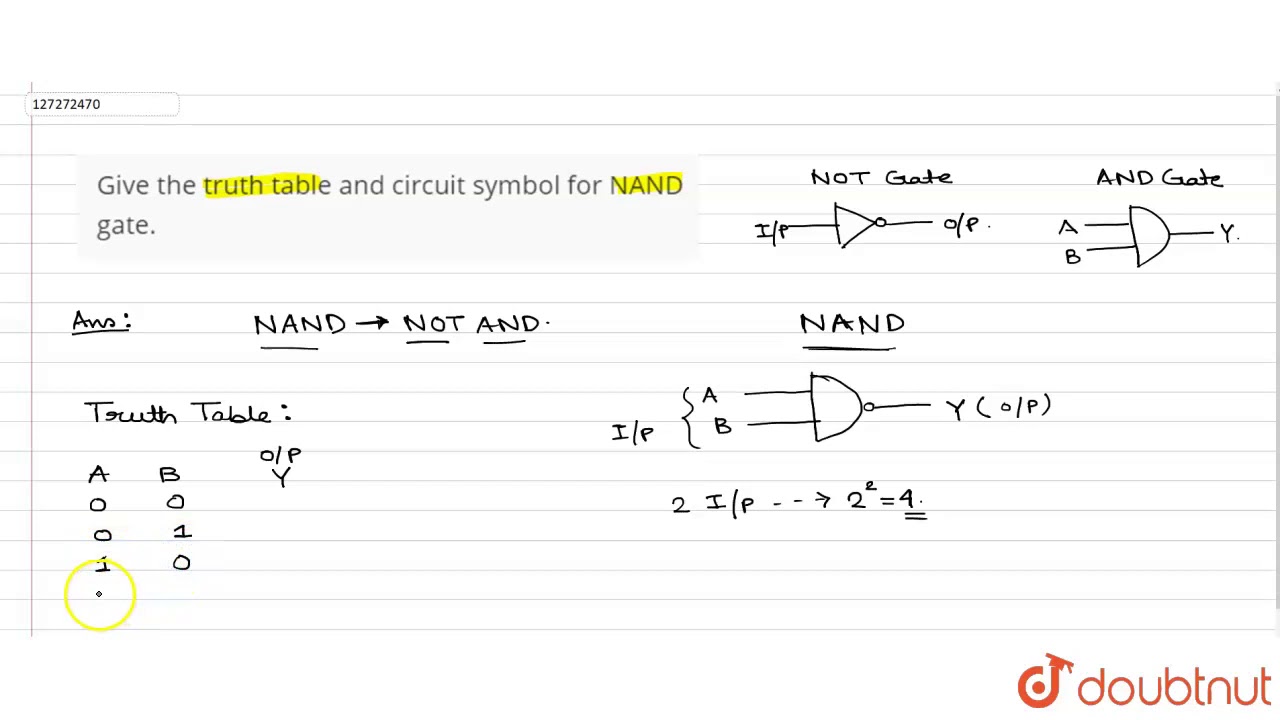 127272470
Give the truth table and circuit symbol for NAND
gate.
NOT Gate
I/P O/P.
AND Gate
A
B
Y.
Ans:
NAND → NOT AND.
NAND
I/P
A
B
Y (O/P)
Truth Table:
O/P
A B Y
0 0
0 1
1 0
2 I/P --→ 2² = 4.
doubtnut